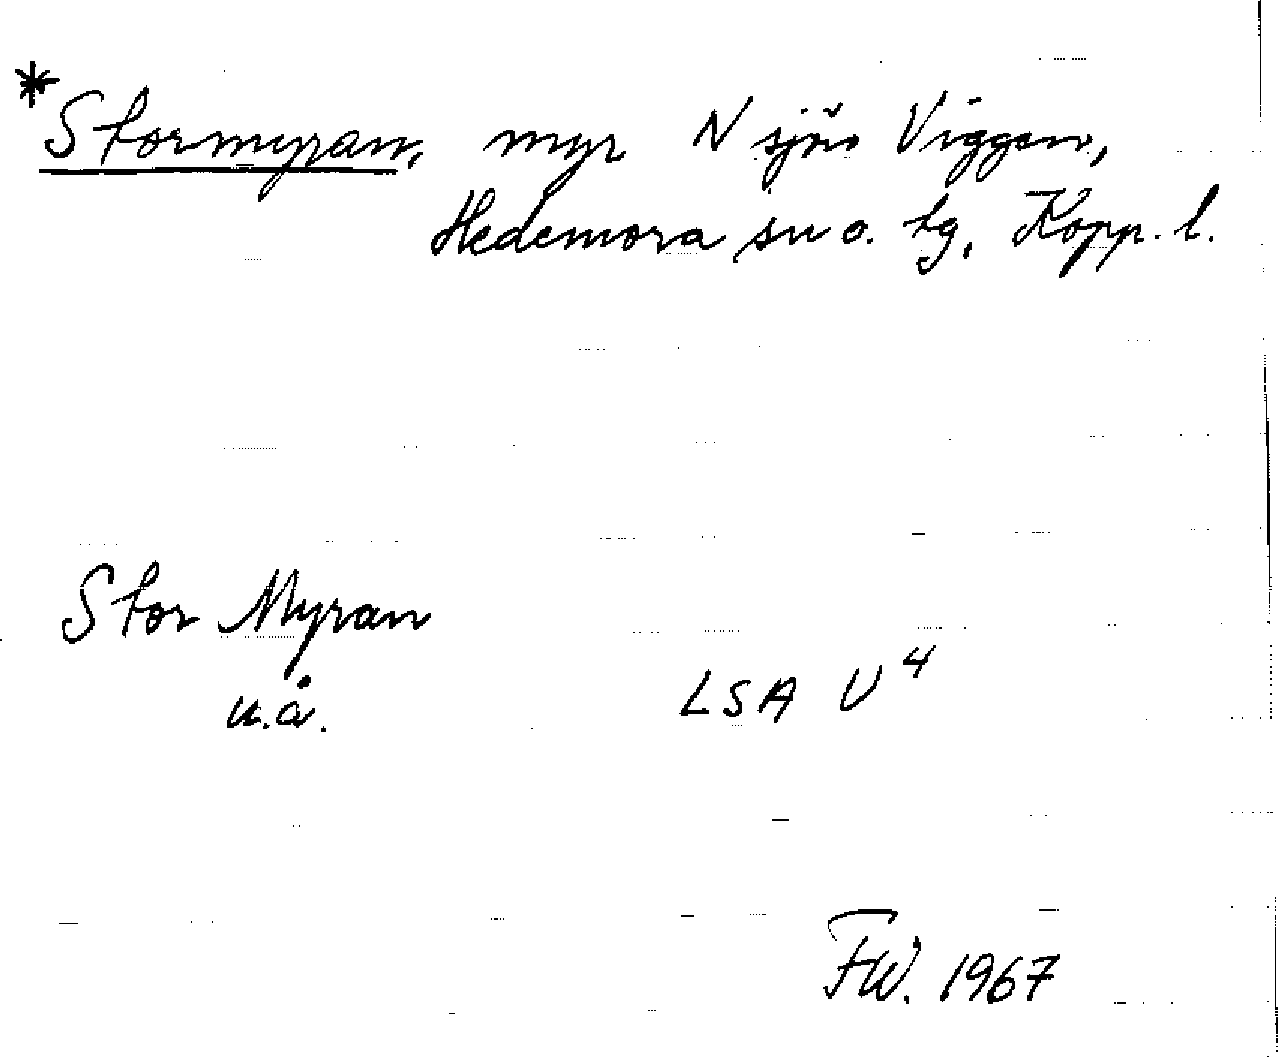 *Stormyran, myr N sjön Viggen,
Hedemora sn o. tg, Kopp. l.
Stor Myran
u.å.
LSA U⁴
FW. 1967